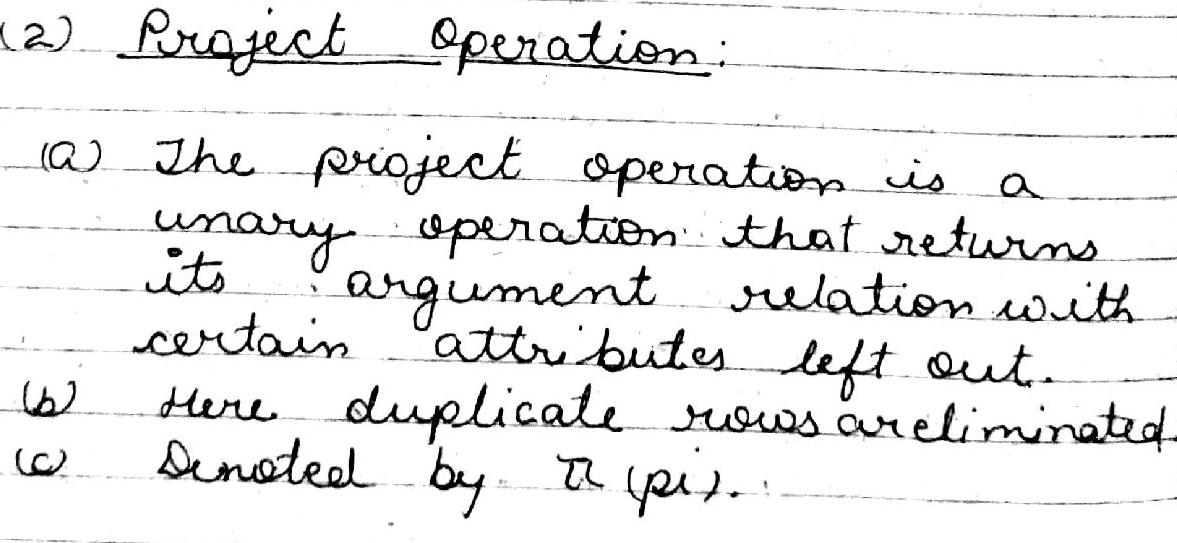 (2) Project Operation:
(a) The project operation is a
unary operation that returns
its argument relation with
certain attributes left out.
(b) Here duplicate rows are eliminated.
(c) Denoted by π (pi).